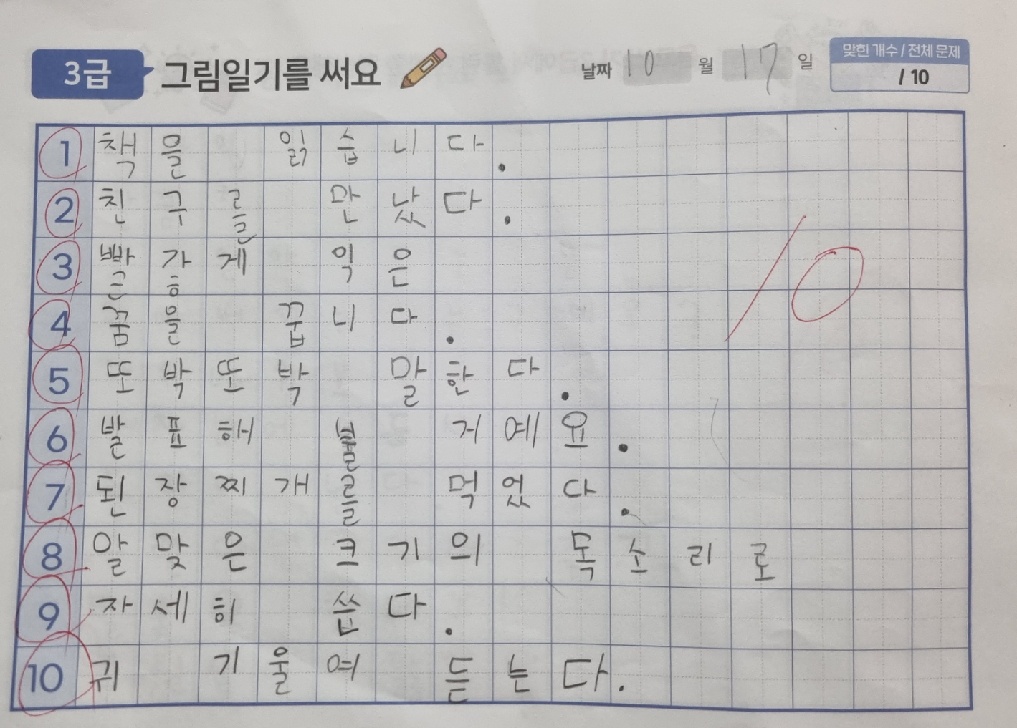 3급 그림일기를 써요 날짜 10 월 17 일 맞힌 개수 / 전체 문제
/ 10
1 책을 읽습니다.
2 친구를 만났다.
3 빨갛게 익은
4 꿈을 꿉니다.
5 또박또박 말한다.
6 발표해 볼 거예요.
7 된장찌개를 먹었다.
8 알맞은 크기의 목소리로
9 자세히 쓴다.
10 귀 기울여 듣는다.
10